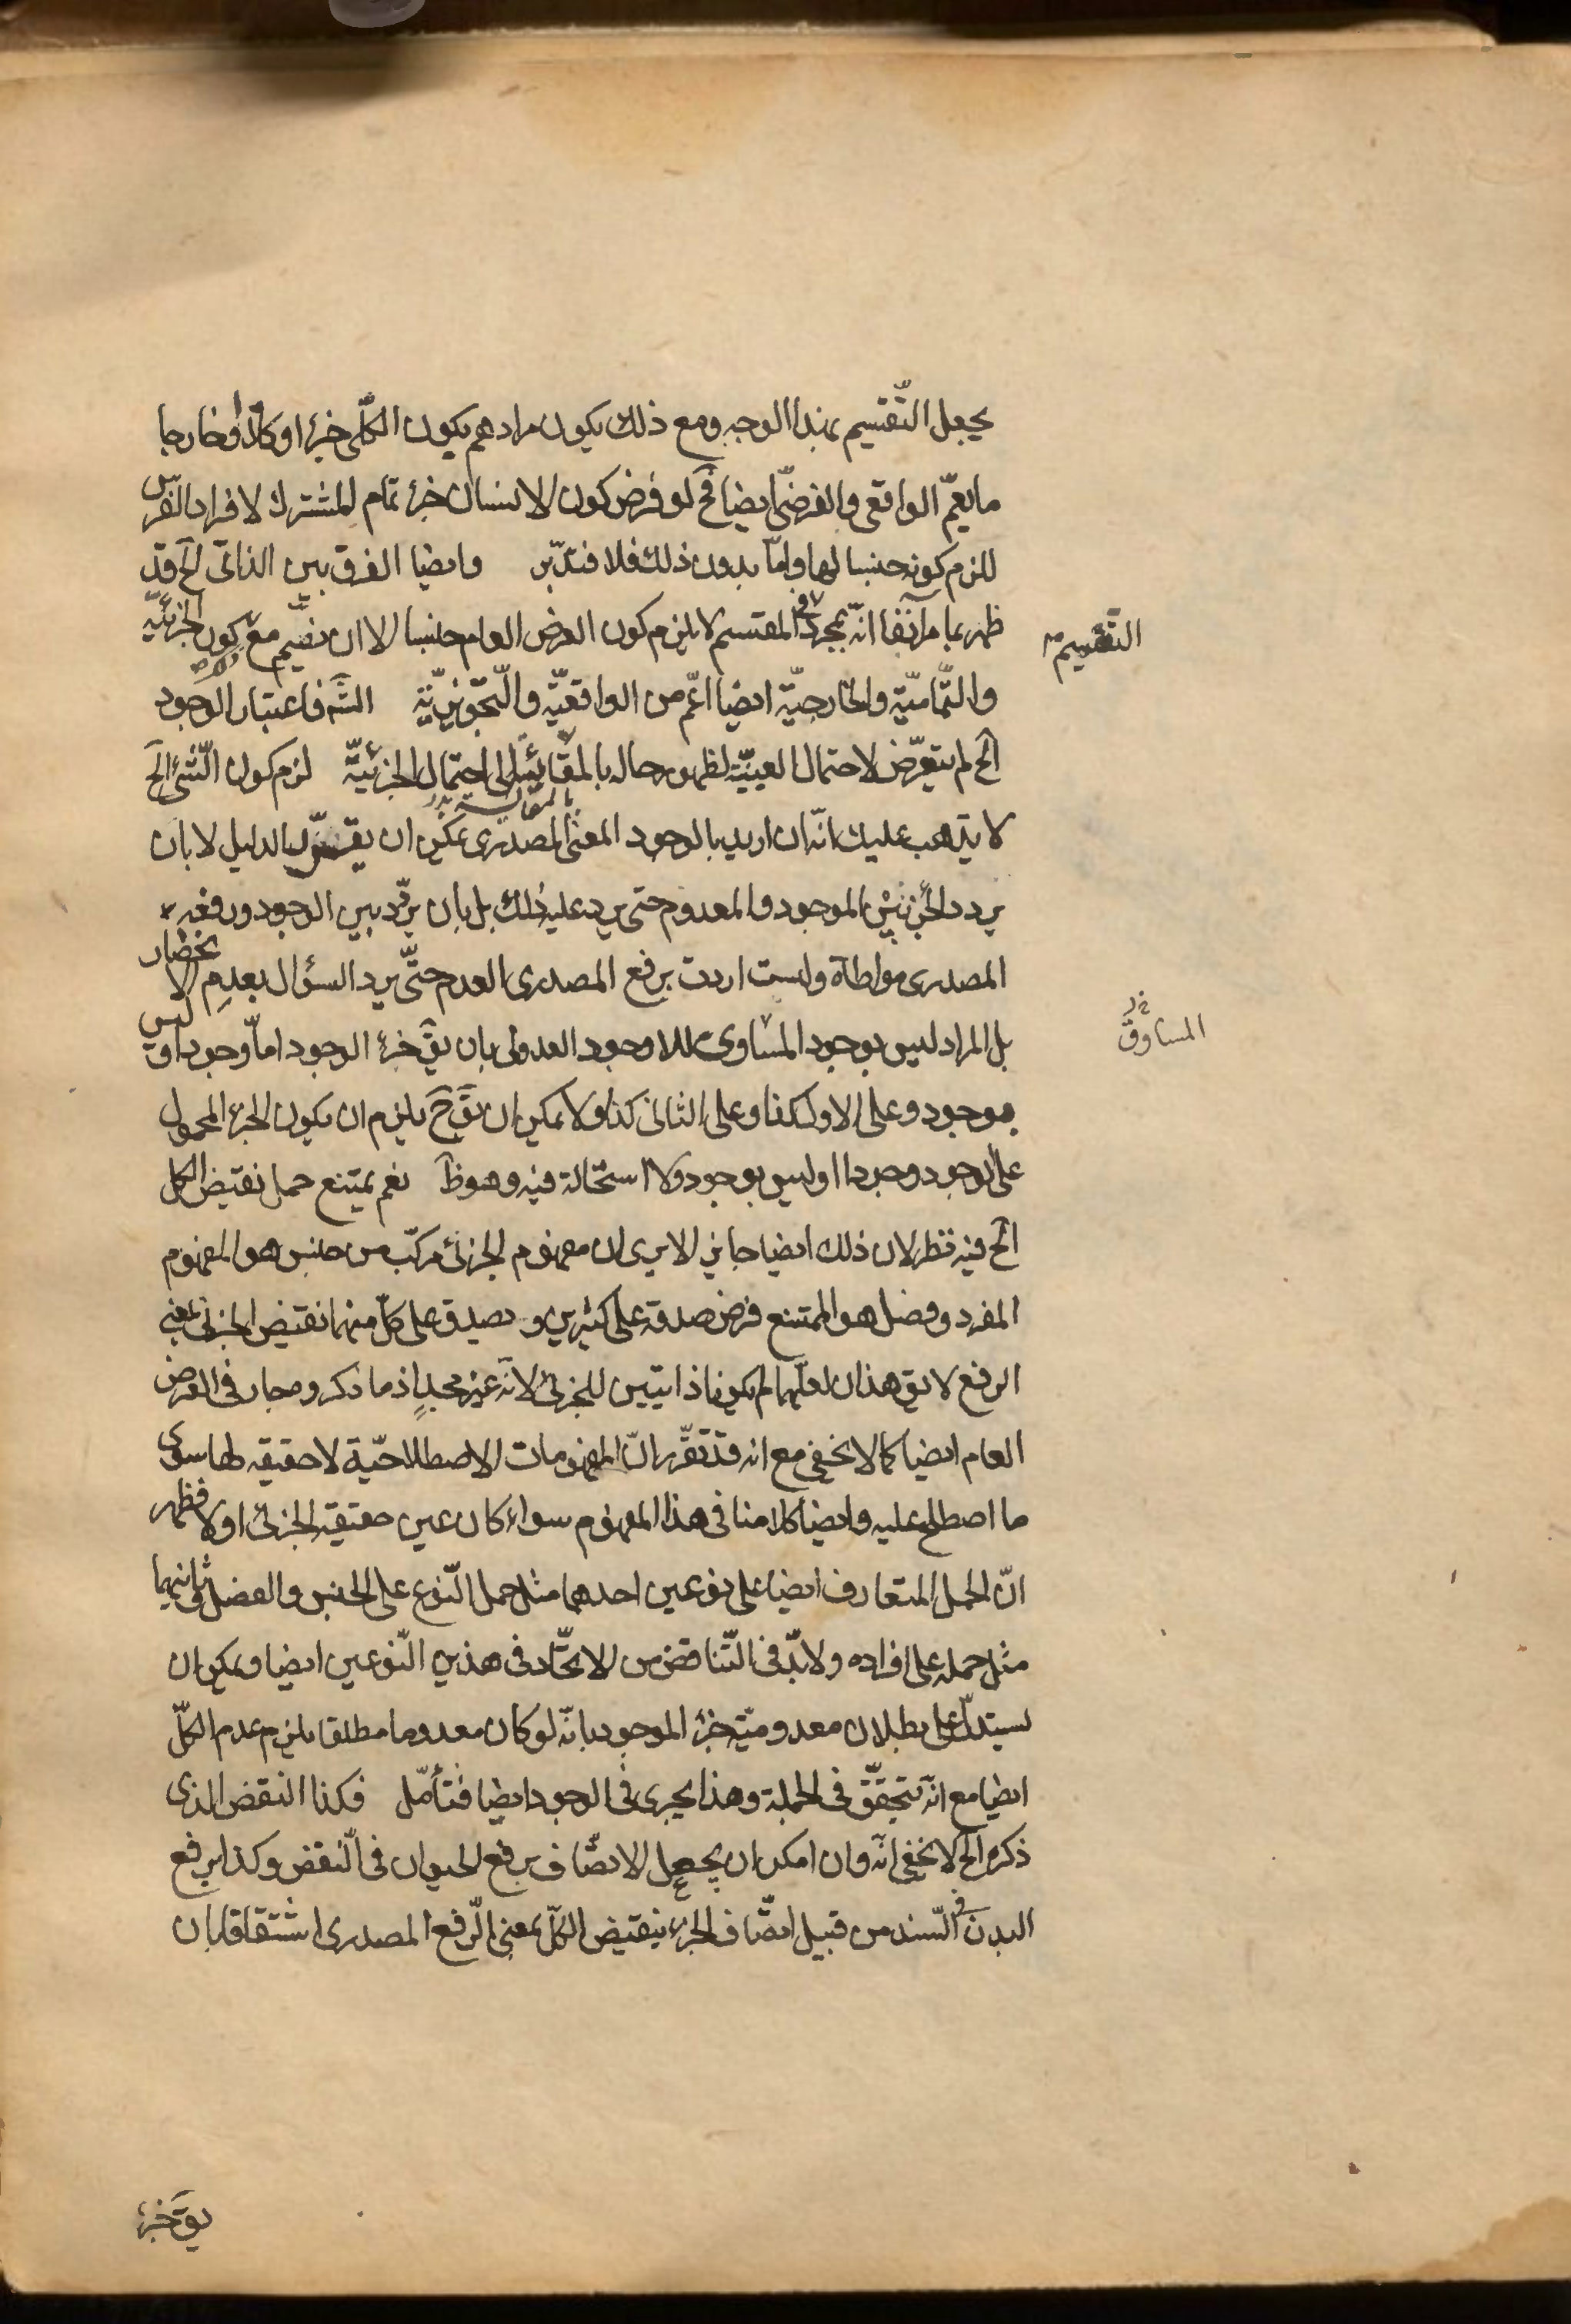 يجعل التّقسيم بهذا الوجه ومع ذلك يكون مرادهم بكون الكلّى جزءا او كلّا او خارجا
ما يعمّ الواقعى والفرضىّ ايضا فح لو فرض كون الانسان جزء تمام المشترك لافراد الفرس
للزم كونه جنسا لها وامّا بدون ذلك فلا فتدبّر وايضا الفرق بين الذاتى الخ قد
ظهر بما مر آنفا انّه بمجرد المقسم لا يلزم كون العرض العام جنسا الا ان نضم مع كون الجزئيّة
التّقسيم
والتّماميّة والخارجيّة ايضا اعّم من الواقعيّة والتّجويزيّة الشه فاعتبار الوجود
الخ لم يتعرّض لاحتمال العينيّة لظهور حاله بالمقائسة الى احتمال الجزئيّة لزم كون الشئ الخ
بالمقايسة
لا يذهب عليك انّه ان اريد بالوجود المعنى المصدرى يمكن ان يقرّر الدليل لا بان
يردد الجزء بين الموجود والمعدوم حتى يرد عليه ذلك بل بان يردّد بين الوجود ورفعه
المصدرى مواطاة ولست اردت برفع المصدرى العدم حتّى يرد السؤال بعدم الانحصار
بل المراد ليس بوجود المساوى للاوجود العدولى بان يقَ جزء الوجود امّا وجود او ليس
المساوق
بوجود وعلى الاول كذا وعلى الثانى كذا ولا يمكن ان يقَ ح يلزم ان يكون الجزء المحمول
على الوجود وجودا او ليس بوجود ولا استحالة فيه وهو ظَ نعم يمتنع حمل نقيض الكل
الخ فيه نظر لان ذلك ايضا جايز الا يرى ان مفهوم الجزئى مركّب من جنس هو المفهوم
المفرد وفصل هو الممتنع فرض صدقه على كثيرين و يصدق على كلّ منهما نقيض الجزئى بمعنى
الرفع لا يق هذان لعلّهما لم يكونا ذاتيين للجزئى لانّه غير مجدٍ اذ ما ذكر وه جار فى العرض
العام ايضا كما لا يخفى مع انه قد تقرّر انّ المفهومات الاصطلاحيّة لا حقيقه لها سوى
ما اصطلح عليه وايضا كلامنا فى هذا المفهوم سواء كان عين حقيقة الجزئى او لا فظهر
انّ الحمل المتعارف ايضا على نوعين احدهما مثل حمل النّوع على الجنس والفصل وثانيهما
مثل حمله على افراده ولا بدّ فى التّناقض من الاتّحاد فى هذين النّوعين ايضا ويمكن ان
يستدلّ على بطلان معدوميّة جزء الموجود بانّه لو كان معدوما مطلقا يلزم عدم الكلّ
ايضا مع انّه يتحقّق فى الجملة وهذا يجرى فى الوجود ايضا فتأمّل فكذا النقض الذى
ذكره الخ لا يخفى انّه وان امكن ان يجعل الاتصّاف برفع الحيوان فى النّقض وكذا برفع
البدن فى السّند من قبيل اتصّاف الجزء بنقيض الكلّ بمعنى الّرفع المصدرى اشتقاقا بان
يقَ جزء